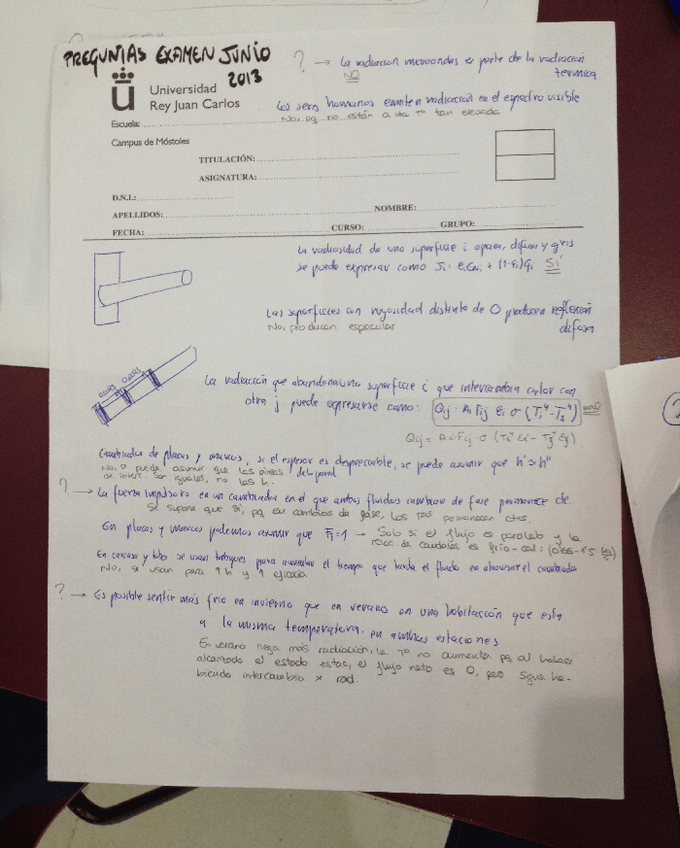 PREGUNTAS EXAMEN JUNIO
2013
? → La radiacion microondas es parte de la radiacion
termica
NO
Universidad
Rey Juan Carlos
Los seres humanos emiten radiación en el espectro visible
No, pq no están a una tª tan elevada
Escuela:
Campus de Móstoles
TITULACIÓN:
ASIGNATURA:
D.N.I.:
APELLIDOS:
NOMBRE:
FECHA:
CURSO:
GRUPO:
La radiosidad de una superficie i opaca, difusa y gris
se puede expresar como Ji = εiEni + (1-εi)Gi Sí
Las superficies con rugosidad distinta de 0 producen reflexión
difusa
No, producen especular
La radiación que abandona una superficie i que intercambia calor con
otra j puede expresarse como: Qij = Ai Fij εi σ (Ti⁴-Tj⁴)
Qij = Ai Fij σ (Ti⁴ εi - Tj⁴ εj)
Cambiador de placas y marcos, si el espesor es despreciable, se puede asumir que h' ≃ h''
No, se puede asumir que las áreas de la pared
de interc. son iguales, no las h.
? → La fuerza impulsora en un cambiador en el que ambos fluidos cambian de fase permanece cte.
Se supone que sí, pq en cambios de fase, las Tas permanecen ctes.
En placas y marcos podemos asumir que FT=1 → Solo si el flujo es paralelo y la
relac de caudales es frío-cal: (0'66-1'5)
En carcasa y tubo se usan tabiques para aumentar el tiempo que tarda el fluido en atravesar el cambiador
No, se usan para ↑h y ↑ eficacia
? → Es posible sentir más frio en invierno que en verano en una habitacción que esta
a la misma temperatura en ambas estaciones
En verano llega más radiación, la Tª no aumenta pq al haber
alcanzado el estado estac, el flujo neto es 0, pero sigue ha-
biendo intercambio x rad.